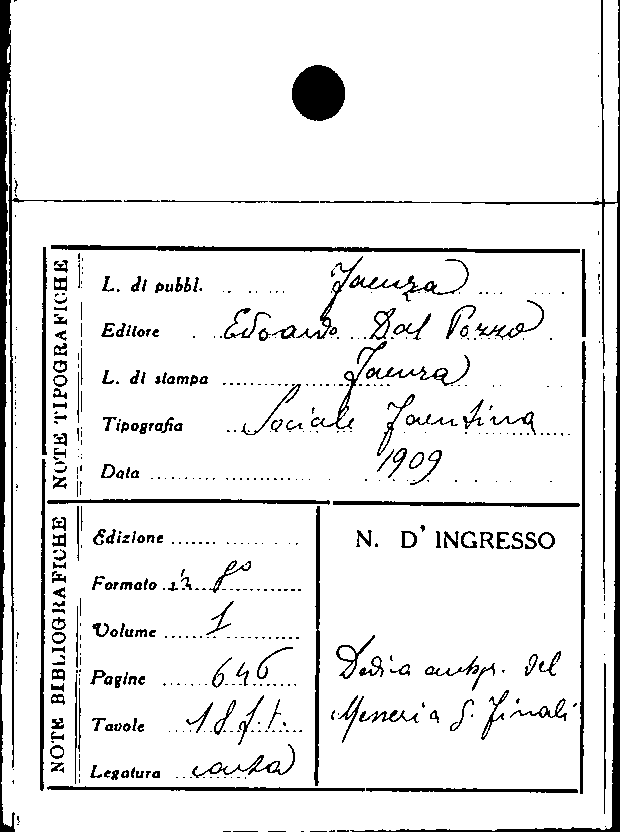 NOTE TIPOGRAFICHE
L. di pubbl. Faenza
Editore Edoardo Dal Pozzo
L. di stampa Faenza
Tipografia Sociale Faentina
Data 1909
NOTE BIBLIOGRAFICHE
Edizione
Formato in 8°
Volume 1
Pagine 646
Tavole 18 f.t.
Legatura carta
N. D' INGRESSO
Dedica autogr. del
Messeri a G. Finali